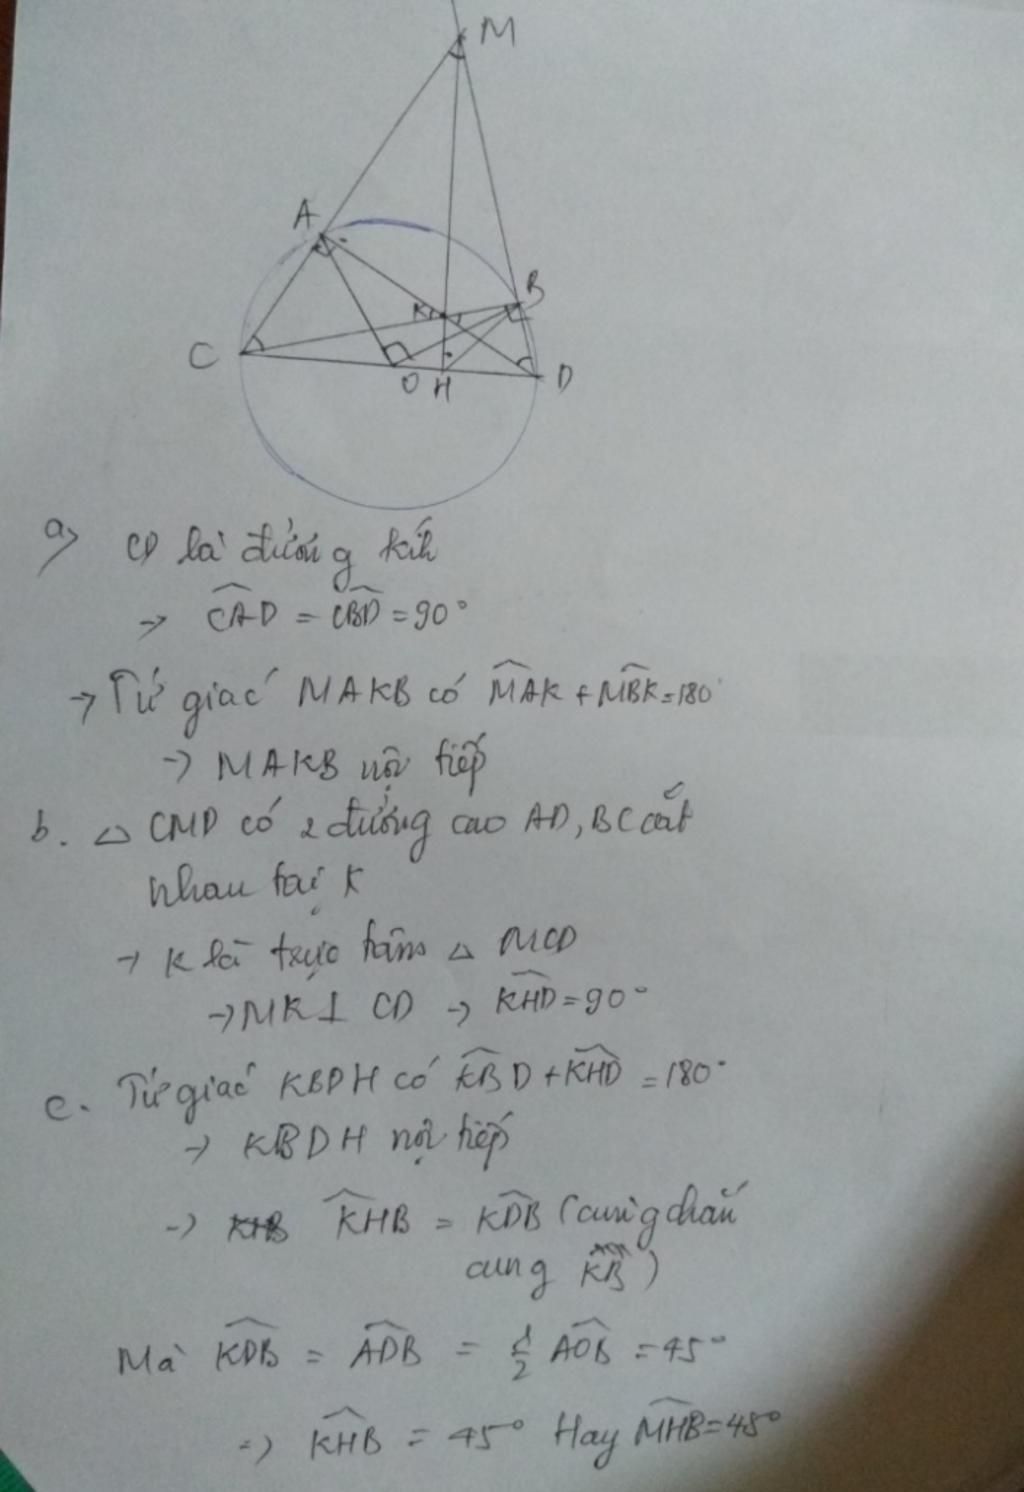 M
A
B
K
C
O
H
D
a) CD là đường kính
→ CAD = CBD = 90°
→ Tứ giác MAKB có MAK + MBK = 180°
→ MAKB nội tiếp
b. △ CMD có 2 đường cao AD, BC cắt
nhau tại K
→ K là trực tâm △ MCD
→ MK ⊥ CD → KHD = 90°
c. Tứ giác KBDH có KBD + KHD = 180°
→ KBDH nội tiếp
→ KHB KHB = KDB (cùng chắn
cung KB)
Mà KDB = ADB = 1/2 AOB = 45°
=> KHB = 45° Hay MHB = 45°